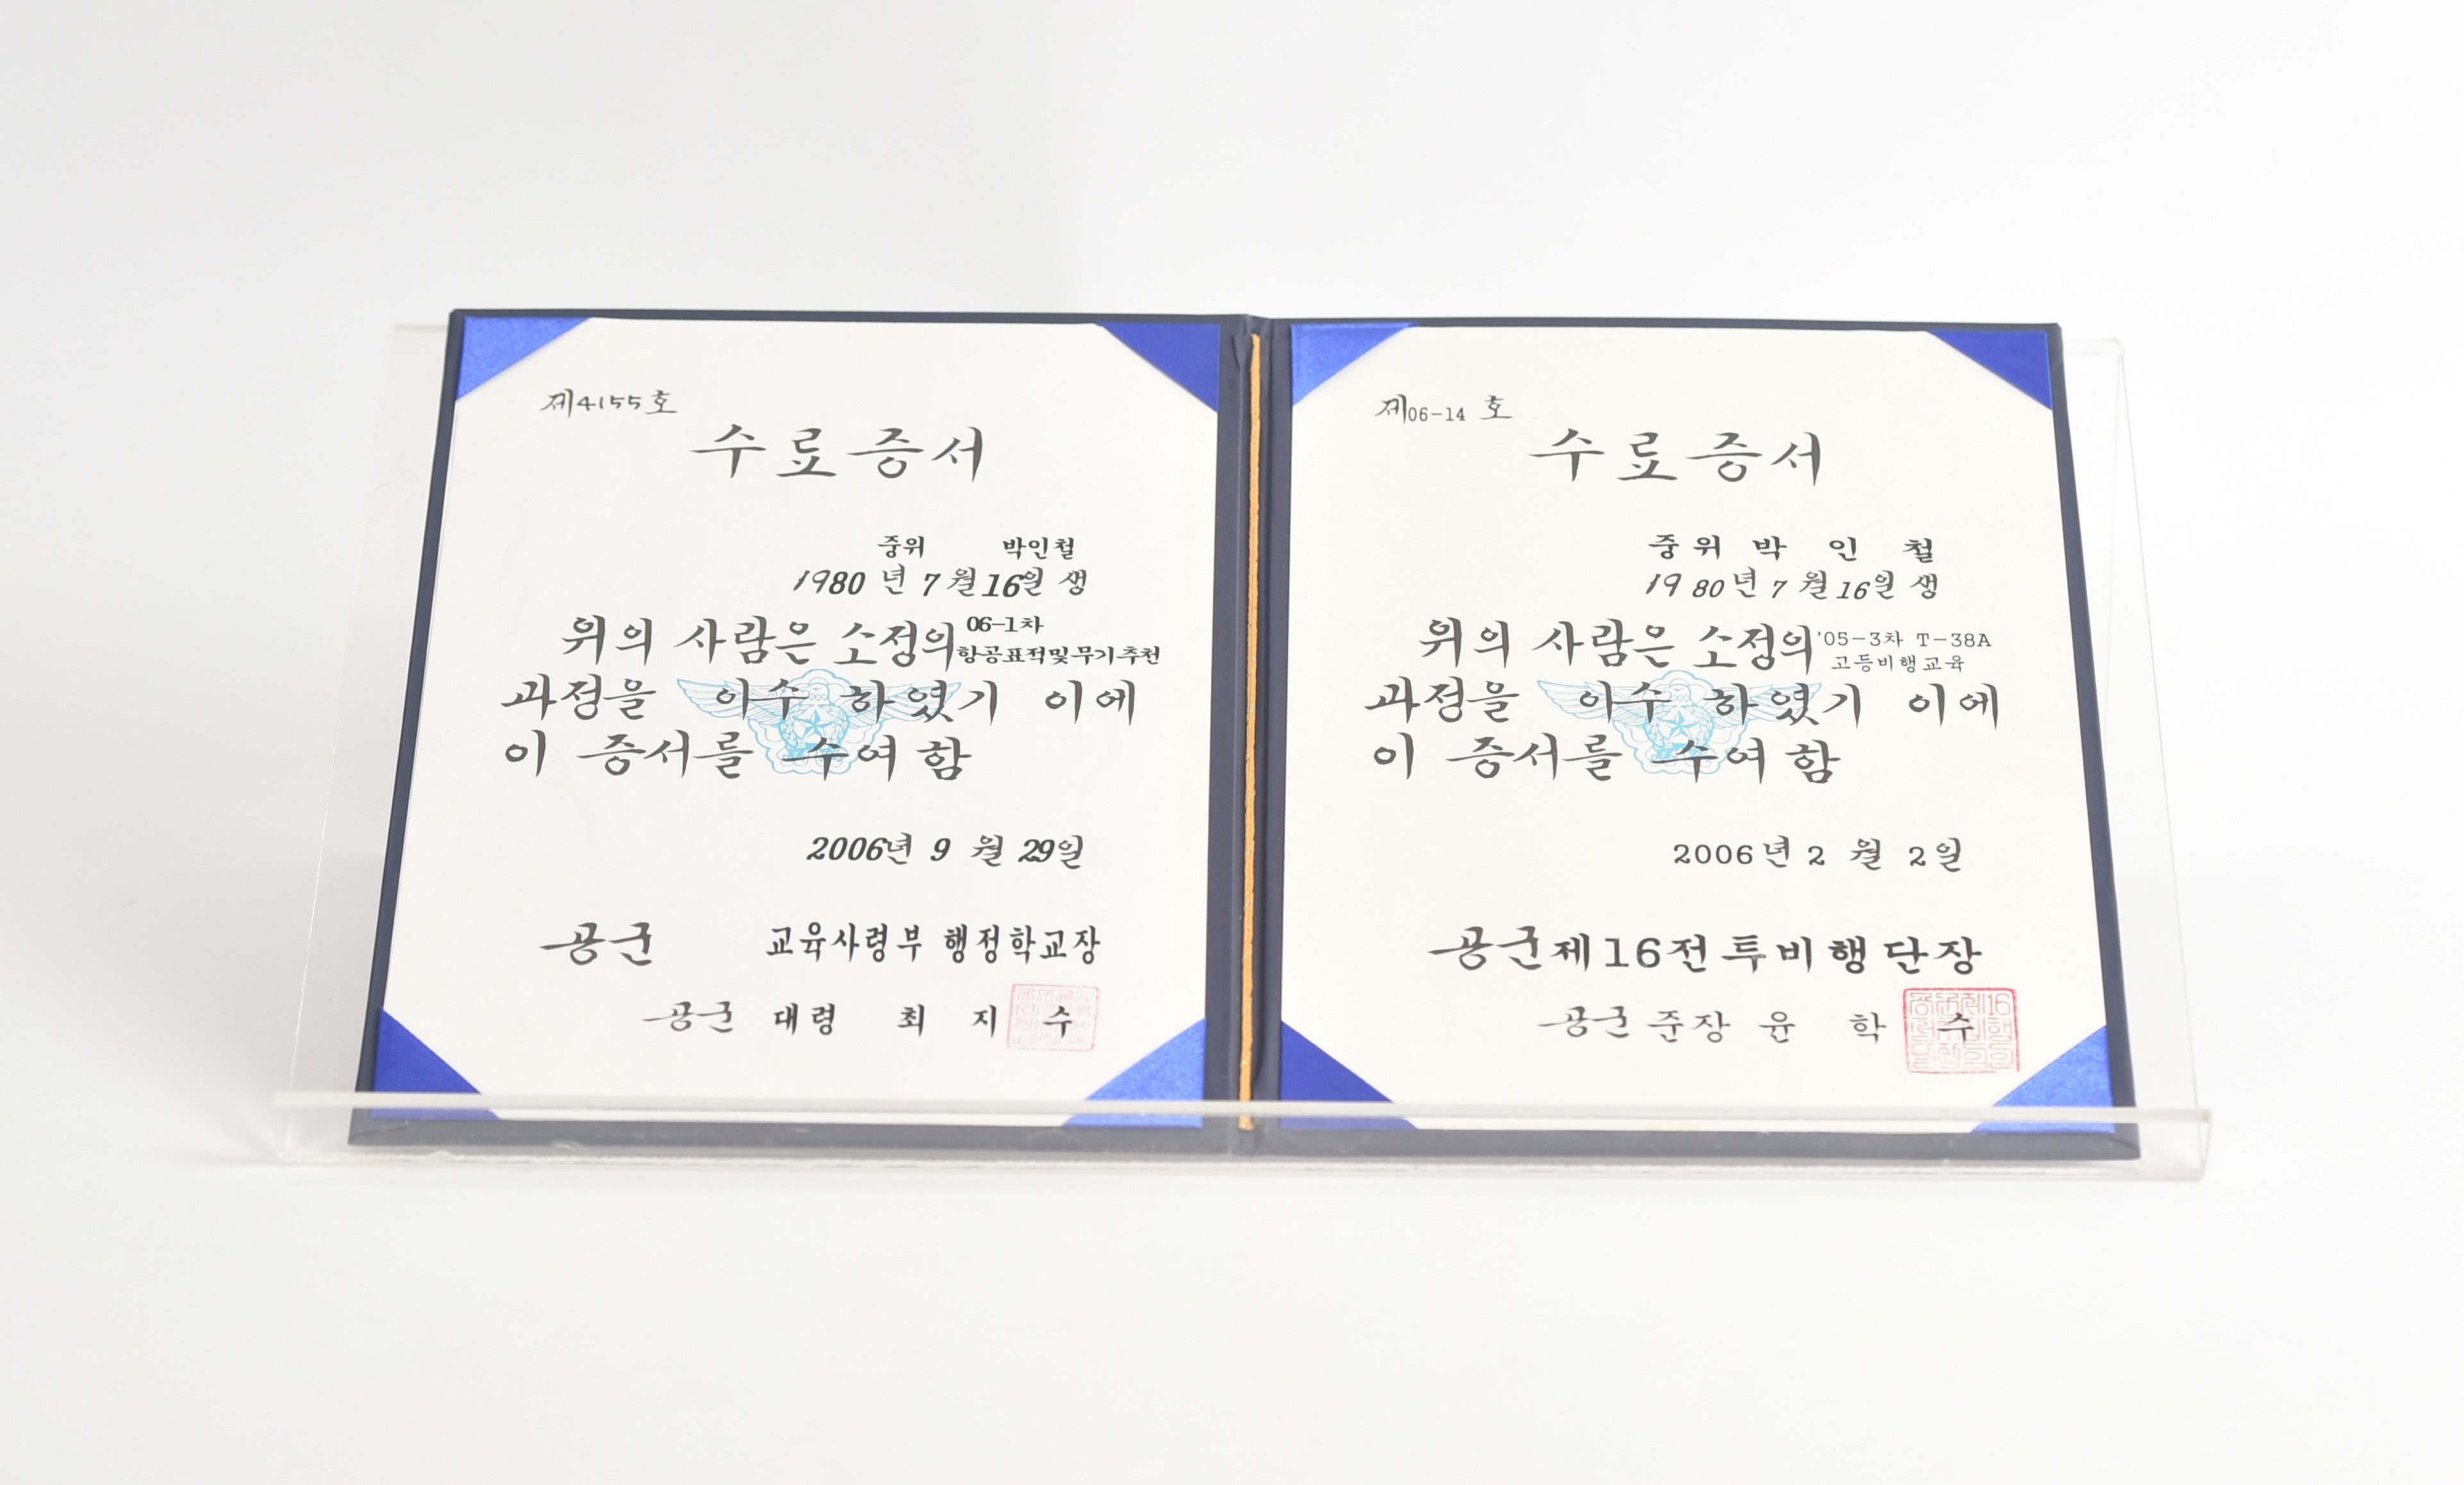 제4155호
수료증서
중위 박인철
1980년 7월 16일 생
위의 사람은 소정의 06-1차
항공표적및무기추천
과정을 이수 하였기 이에
이 증서를 수여함
2006년 9월 29일
공군 교육사령부 행정학교장
공군 대령 최지수
제06-14 호
수료증서
중위 박인철
1980년 7월 16일 생
위의 사람은 소정의 '05-3차 T-38A
고등비행교육
과정을 이수 하였기 이에
이 증서를 수여함
2006년 2월 2일
공군제16전투비행단장
공군 준장 윤학수